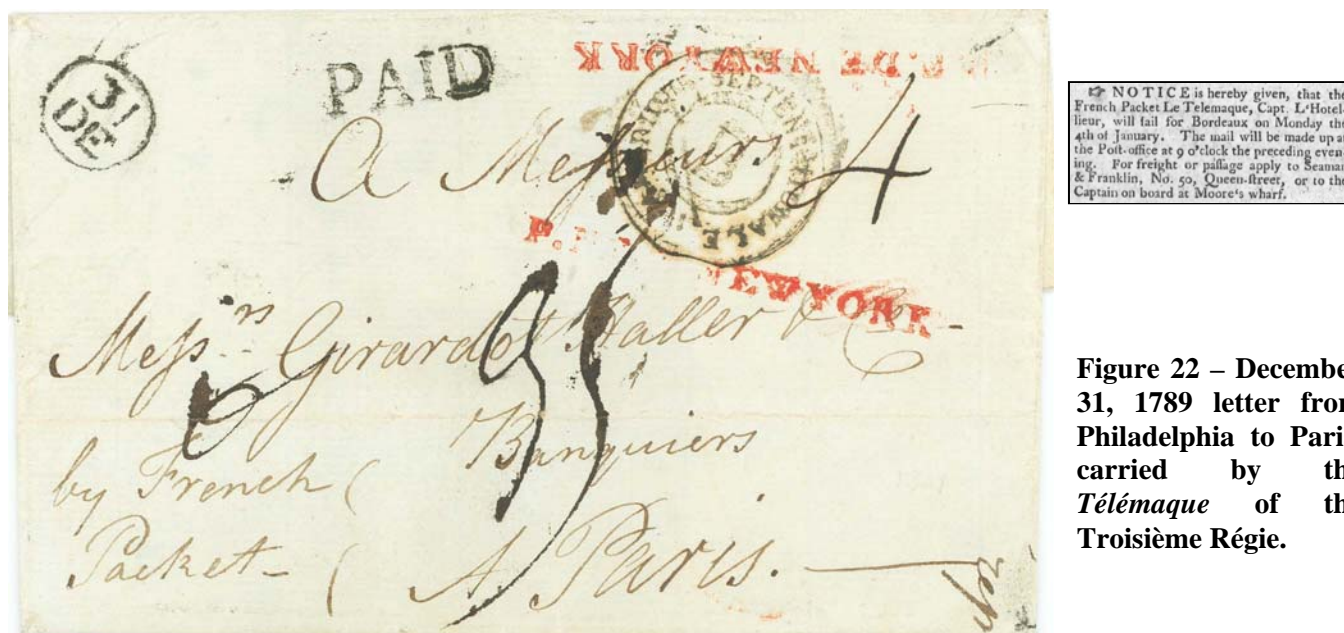 31
DE
PAID
P.F. DE NEWYORK
A Messieurs 4
Mess.rs Girardot Haller & C
35
6
by French ( Banquiers
Packet - ( A Paris.
☞ NOTICE is hereby given, that the
French Packet Le Telemaque, Capt. L'Hotel-
lieur, will sail for Bordeaux on Monday the
4th of January. The mail will be made up at
the Post-office at 9 o'clock the preceding even-
ing. For freight or passage apply to Seaman
& Franklin, No. 50, Queen-street, or to the
Captain on board at Moore's wharf.
Figure 22 – Decembe
31, 1789 letter fron
Philadelphia to Pari
carried by th
Télémaque of th
Troisième Régie.